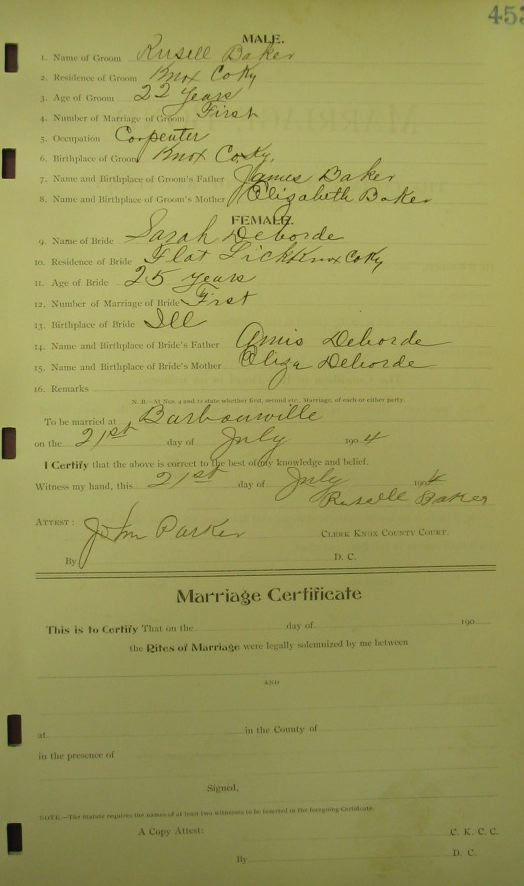 453
MALE.
1. Name of Groom Rusell Baker
2. Residence of Groom Knox Co Ky
3. Age of Groom 22 Years
4. Number of Marriage of Groom First
5. Occupation Corpenter
6. Birthplace of Groom Knox Co Ky.
7. Name and Birthplace of Groom's Father James Baker
8. Name and Birthplace of Groom's Mother Elizabeth Baker
FEMALE.
9. Name of Bride Sarah Deborde
10. Residence of Bride Flat Lick Knox Co Ky
11. Age of Bride 25 years
12. Number of Marriage of Bride First
13. Birthplace of Bride Ill
14. Name and Birthplace of Bride's Father Amis Deborde
15. Name and Birthplace of Bride's Mother Eliza Deborde
16. Remarks
N. B.—At Nos. 4 and 12 state whether first, second etc., Marriage, of each or either party.
To be married at Barbourville
on the 21st day of July 1904
I Certify that the above is correct to the best of my knowledge and belief.
Witness my hand, this 21st day of July 1904
Rusell Baker
ATTEST: John Parker CLERK KNOX COUNTY COURT.
By D. C.
Marriage Certificate
This is to Certify That on the day of 190
the Rites of Marriage were legally solemnized by me between
AND
at in the County of
in the presence of
Signed,
NOTE.—The statute requires the names of at least two witnesses to be inserted in the foregoing Certificate.
A Copy Attest: C. K. C. C.
By D. C.